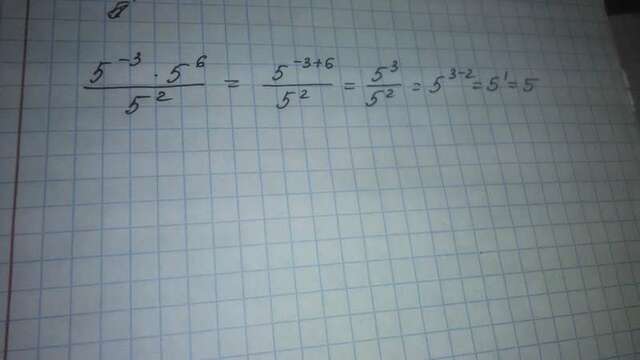 5⁻³ · 5⁶ / 5² = 5⁻³⁺⁶ / 5² = 5³ / 5² = 5³⁻² = 5¹ = 5